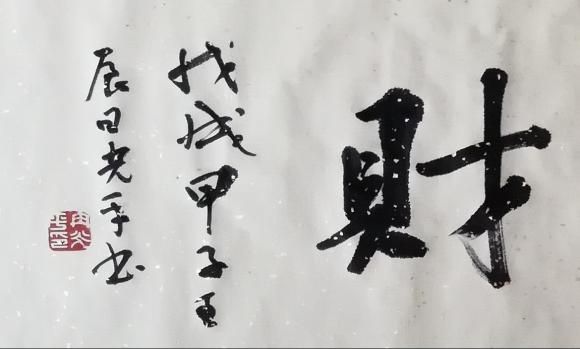 財
戊戌甲子
辰日光平书